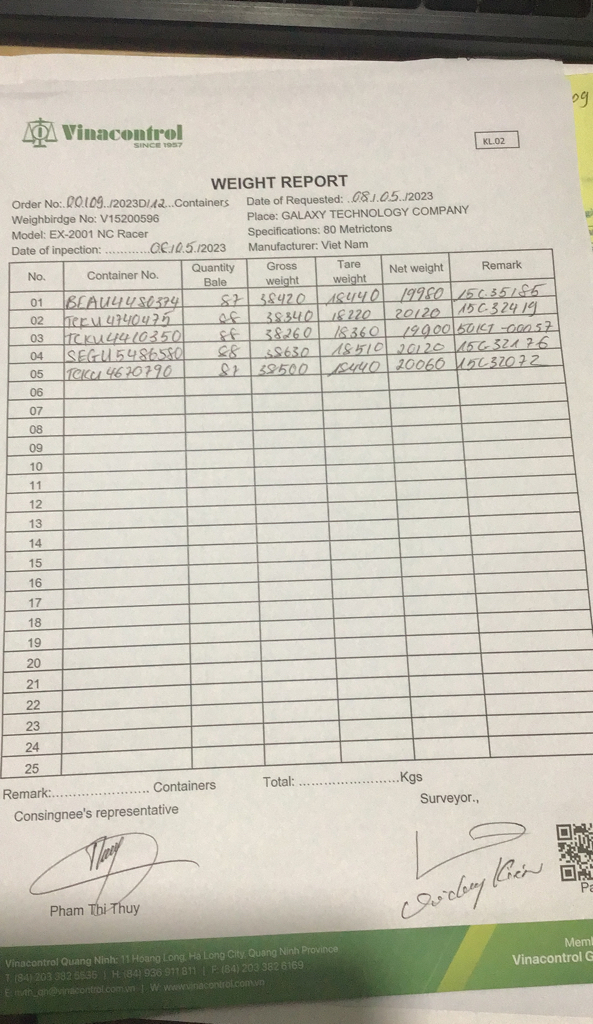 Vinacontrol
SINCE 1957
KL.02
WEIGHT REPORT
Order No:..00109../2023D/112...Containers Date of Requested: ..08.1.05../2023
Weighbirdge No: V15200596 Place: GALAXY TECHNOLOGY COMPANY
Model: EX-2001 NC Racer Specifications: 80 Metrictons
Date of inpection: ............08/0.5./2023 Manufacturer: Viet Nam
No. Container No. Quantity Bale Gross weight Tare weight Net weight Remark
01 BEAU4480374 87 38420 18440 19980 15C.35185
02 TCKU4740475 88 38340 18220 20120 15C.32419
03 88 38260 18360 19900
04 SEGU5486580 88 38630 18510 20120 15C32176
05 TCKU4670790 87 38500 18440 20060 15C32072
06
07
08
09
10
11
12
13
14
15
16
17
18
19
20
21
22
23
24
25
Remark:........................ Containers Total: .........................Kgs
Consingnee's representative Surveyor.,
Thuy
Pham Thi Thuy
Vinacontrol Quang Ninh: 11 Hoang Long, Ha Long City, Quang Ninh Province
T: (84) 203 382 5636 | H: (84) 936 911 811 | F: (84) 203 382 6169
W: www.vinacontrol.com.vn
Vinacontrol G